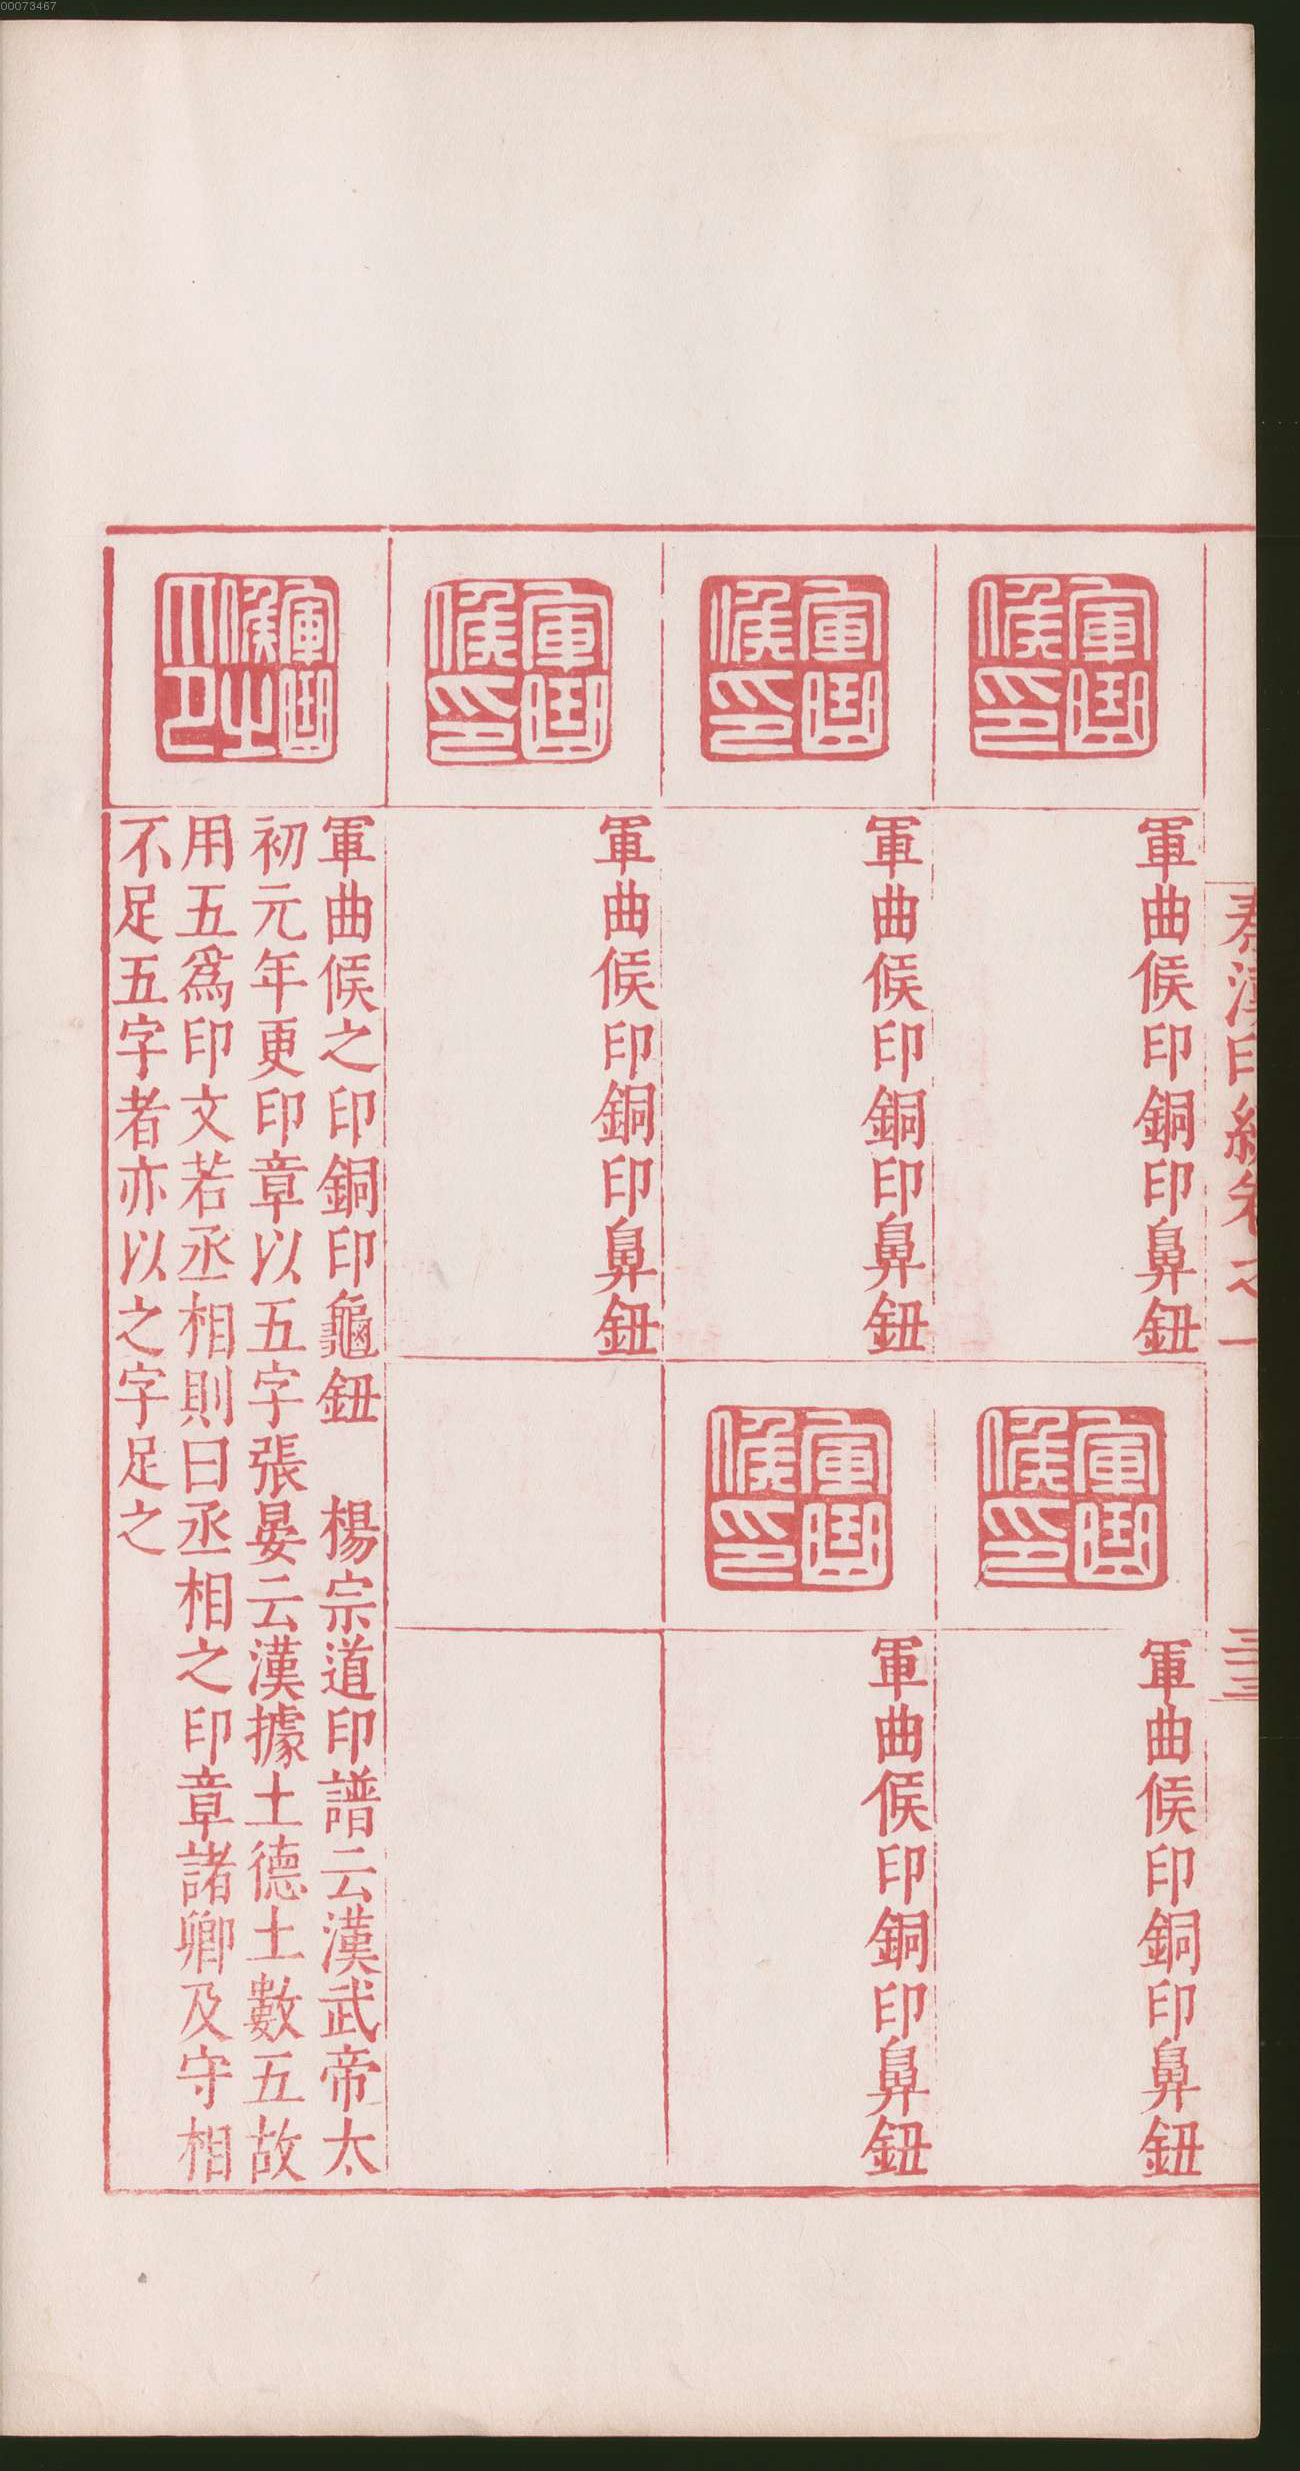 00073467
秦漢印統卷之一
軍曲候印
軍曲候印銅印鼻鈕
軍曲候印
軍曲候印銅印鼻鈕
軍曲候印
軍曲候印銅印鼻鈕
軍曲候印
軍曲候印銅印鼻鈕
軍曲候印
軍曲候印銅印鼻鈕
軍曲候之印
軍曲候之印銅印龜鈕　楊宗道印譜云漢武帝太
初元年更印章以五字張晏云漢據土德土數五故
用五爲印文若丞相則曰丞相之印章諸卿及守相
不足五字者亦以之字足之